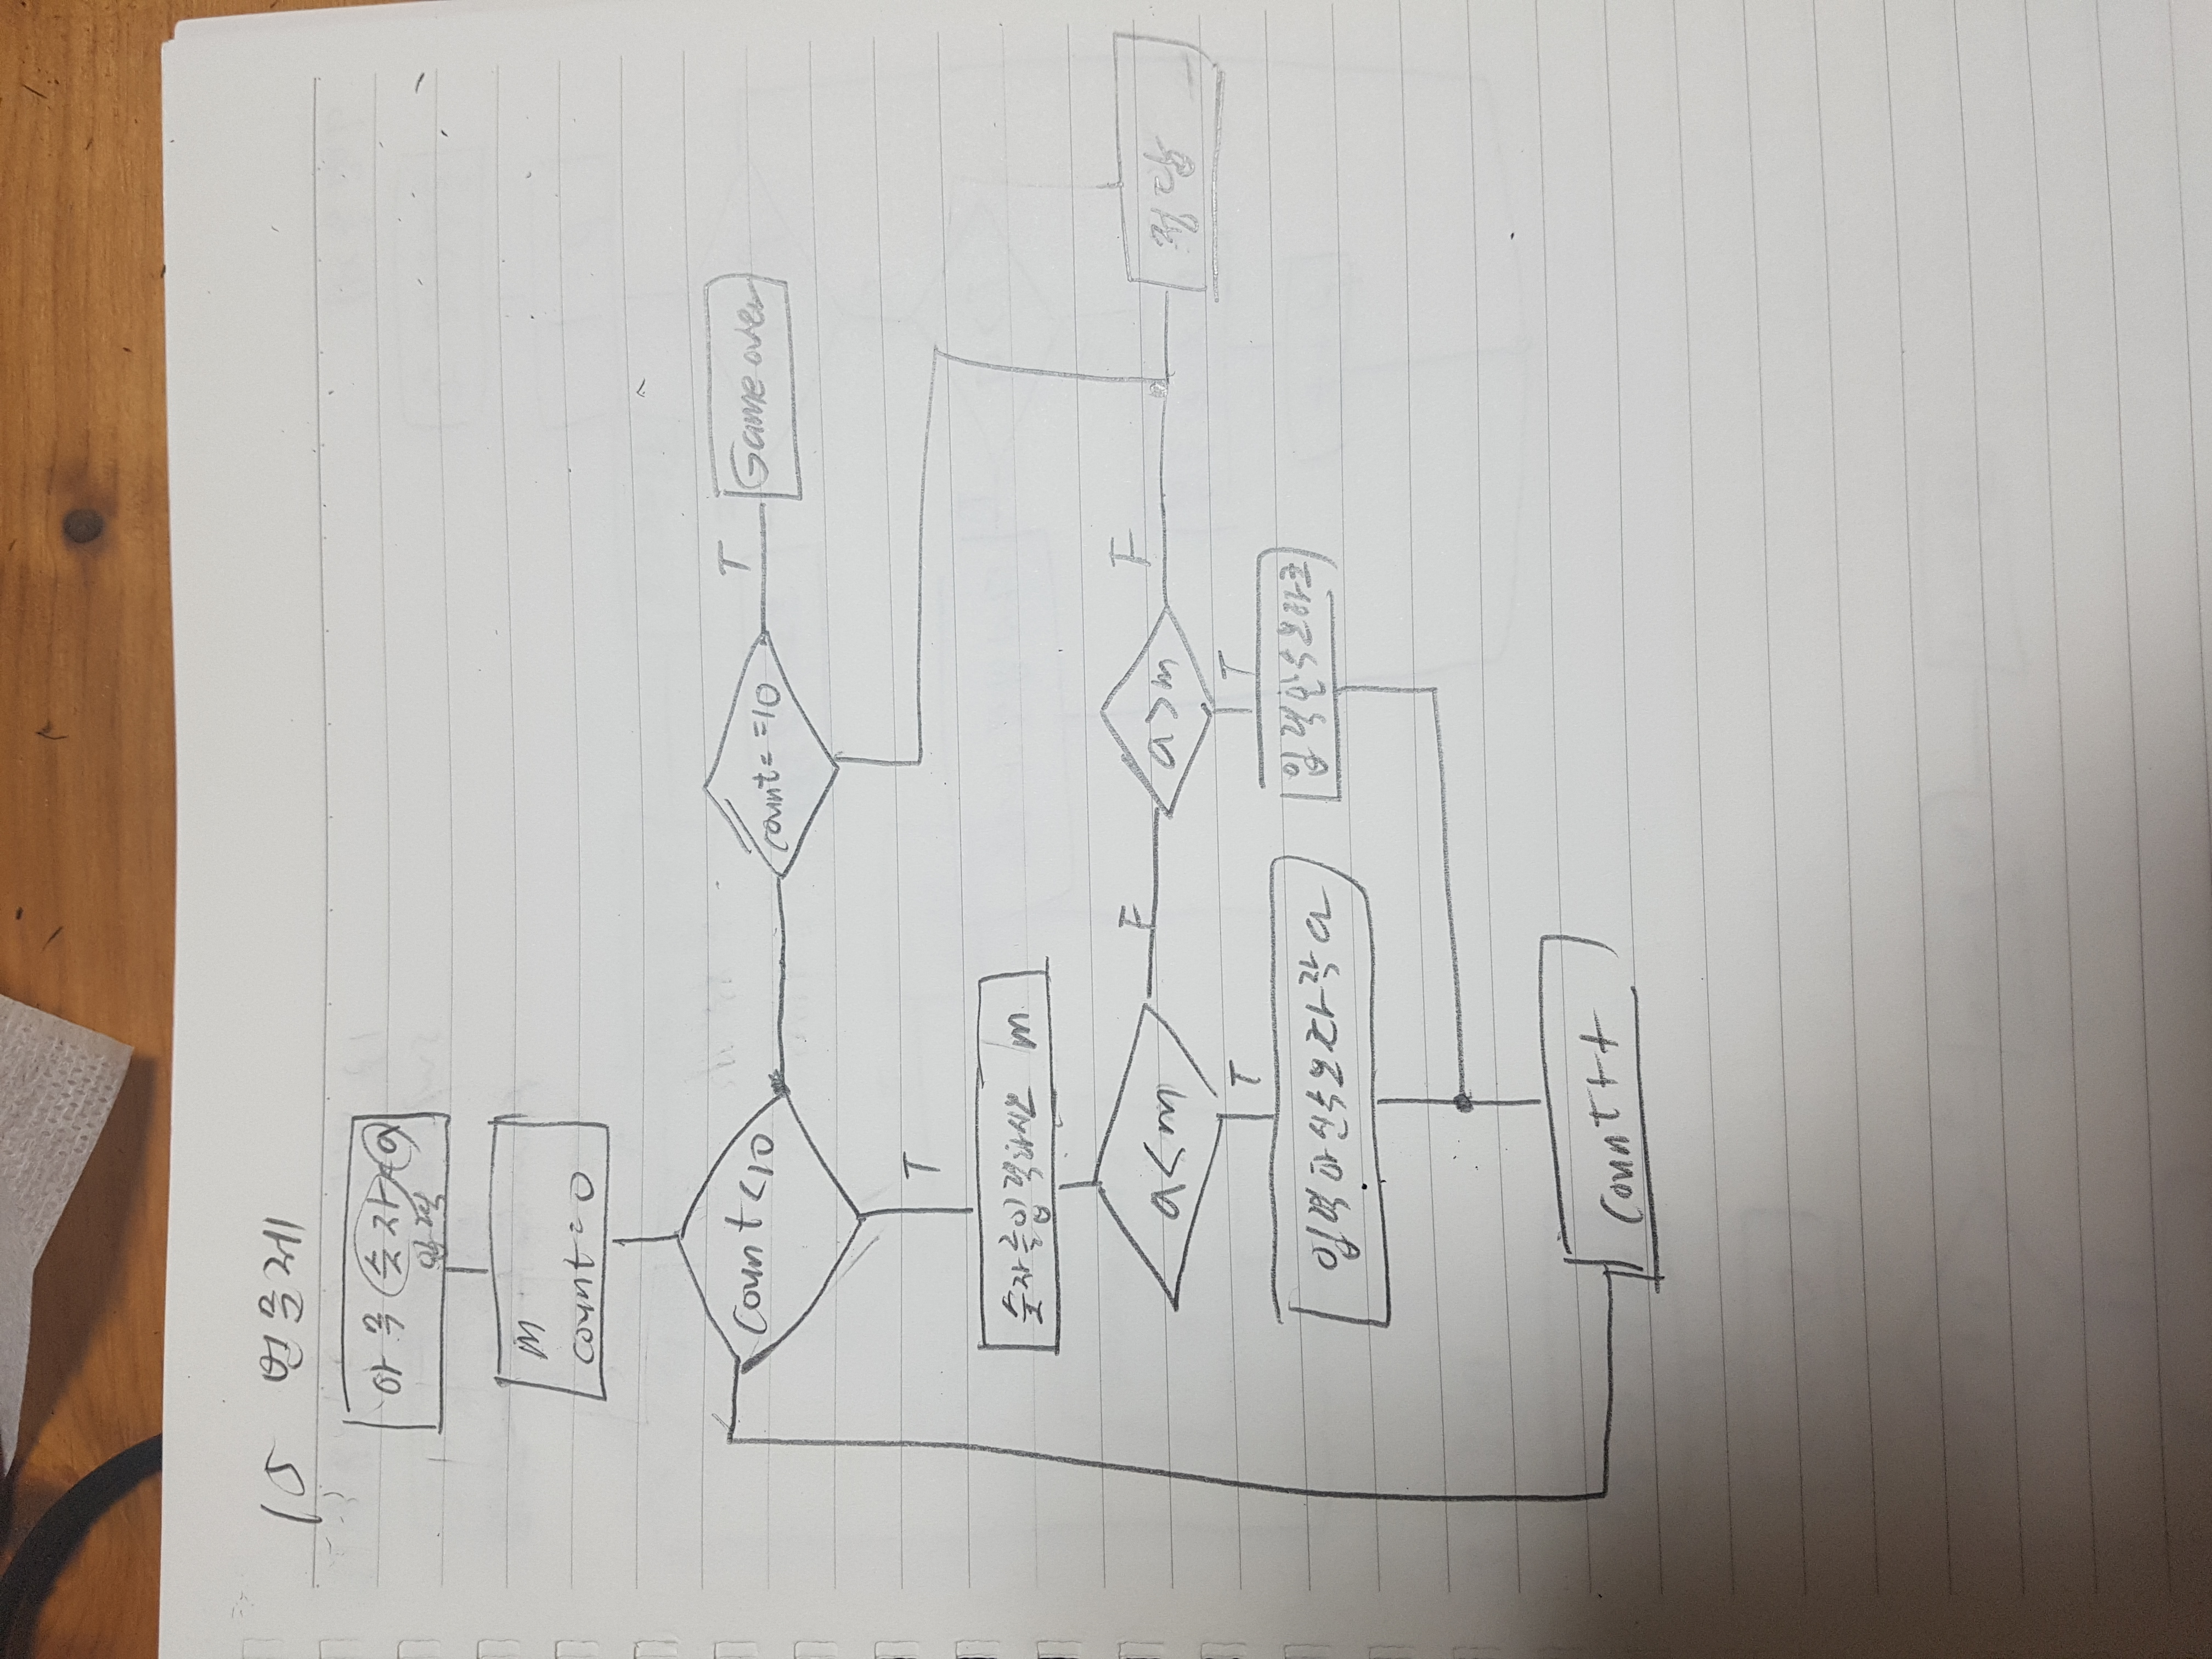 15 번문제
아무 숫자 a
입력
m
count = 0
count < 10
count = = 10
T
Game over
T
숫자를입력하시오 m
a < m
F
a > m
F
정답
T
T
입력하신수보다작
입력한수보다크
count++